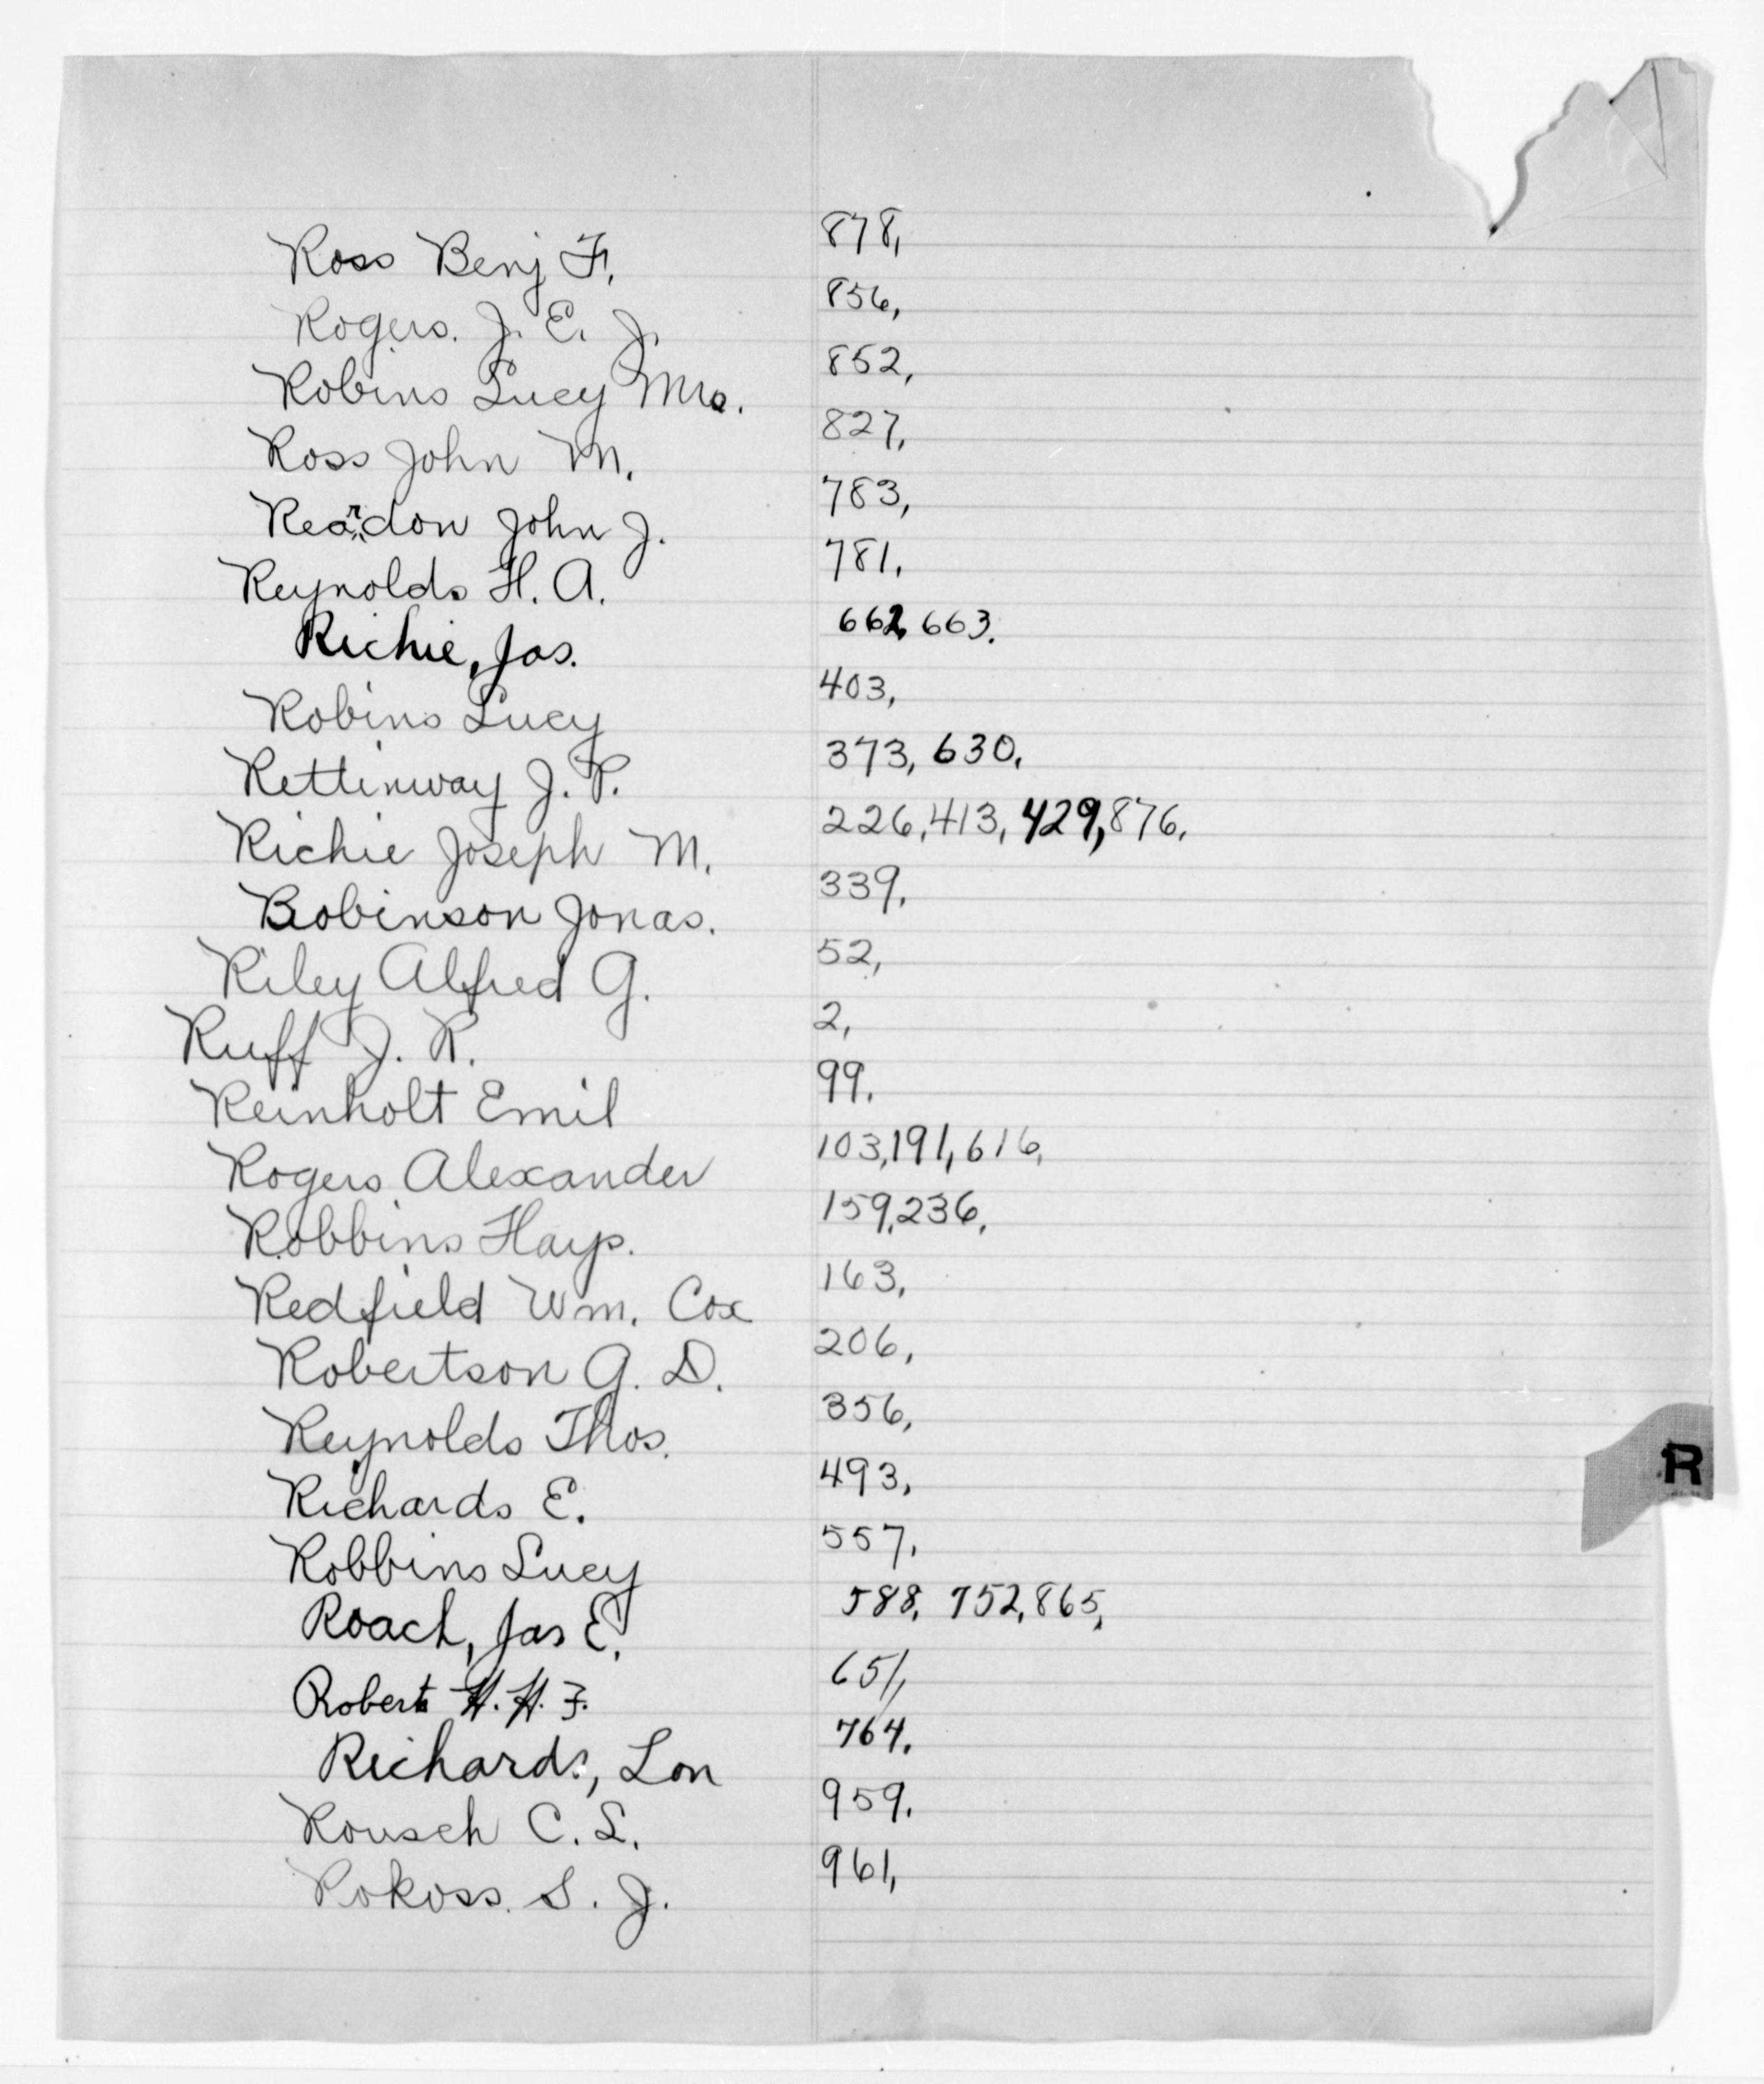 Ross Benj F. 878,
Rogers. J. E. J. 856,
Robins Lucy Mrs. 852,
Ross John M. 827,
Reardon John J. 783,
Reynolds H. A. 781,
Richie, Jas. 662, 663.
Robins Lucy 403,
Rettinway J. P. 373, 630,
Richie Joseph M. 226, 413, 429, 876,
Bobinson Jonas. 339,
Riley Alfred G. 52,
Ruff J. R. 2,
Reinholt Emil 99,
Rogers Alexander 103, 191, 616,
Robbins Hays. 159, 236,
Redfield Wm. Cox 163,
Robertson G. D. 206,
Reynolds Thos. 356,
Richards E. 493,
Robbins Lucy 557,
Roach, Jas E. 588, 752, 865,
Roberts H. H. F. 651,
Richards, Lon 764.
R
Rousch C. L. 959,
Rokoss. S. J. 961,